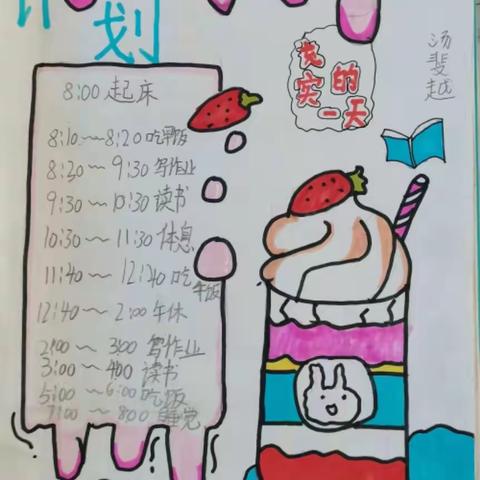 计
划
充
实的
一天
汤斐越
8:00 起床
8:10~8:20吃早饭
8:20~9:30写作业
9:30~10:30读书
10:30~11:30休息
11:40~12:40吃
午饭
12:40~2:00午休
2:00~3:00写作业
3:00~4:00读书
5:00~6:00吃饭
7:00~8:00睡觉